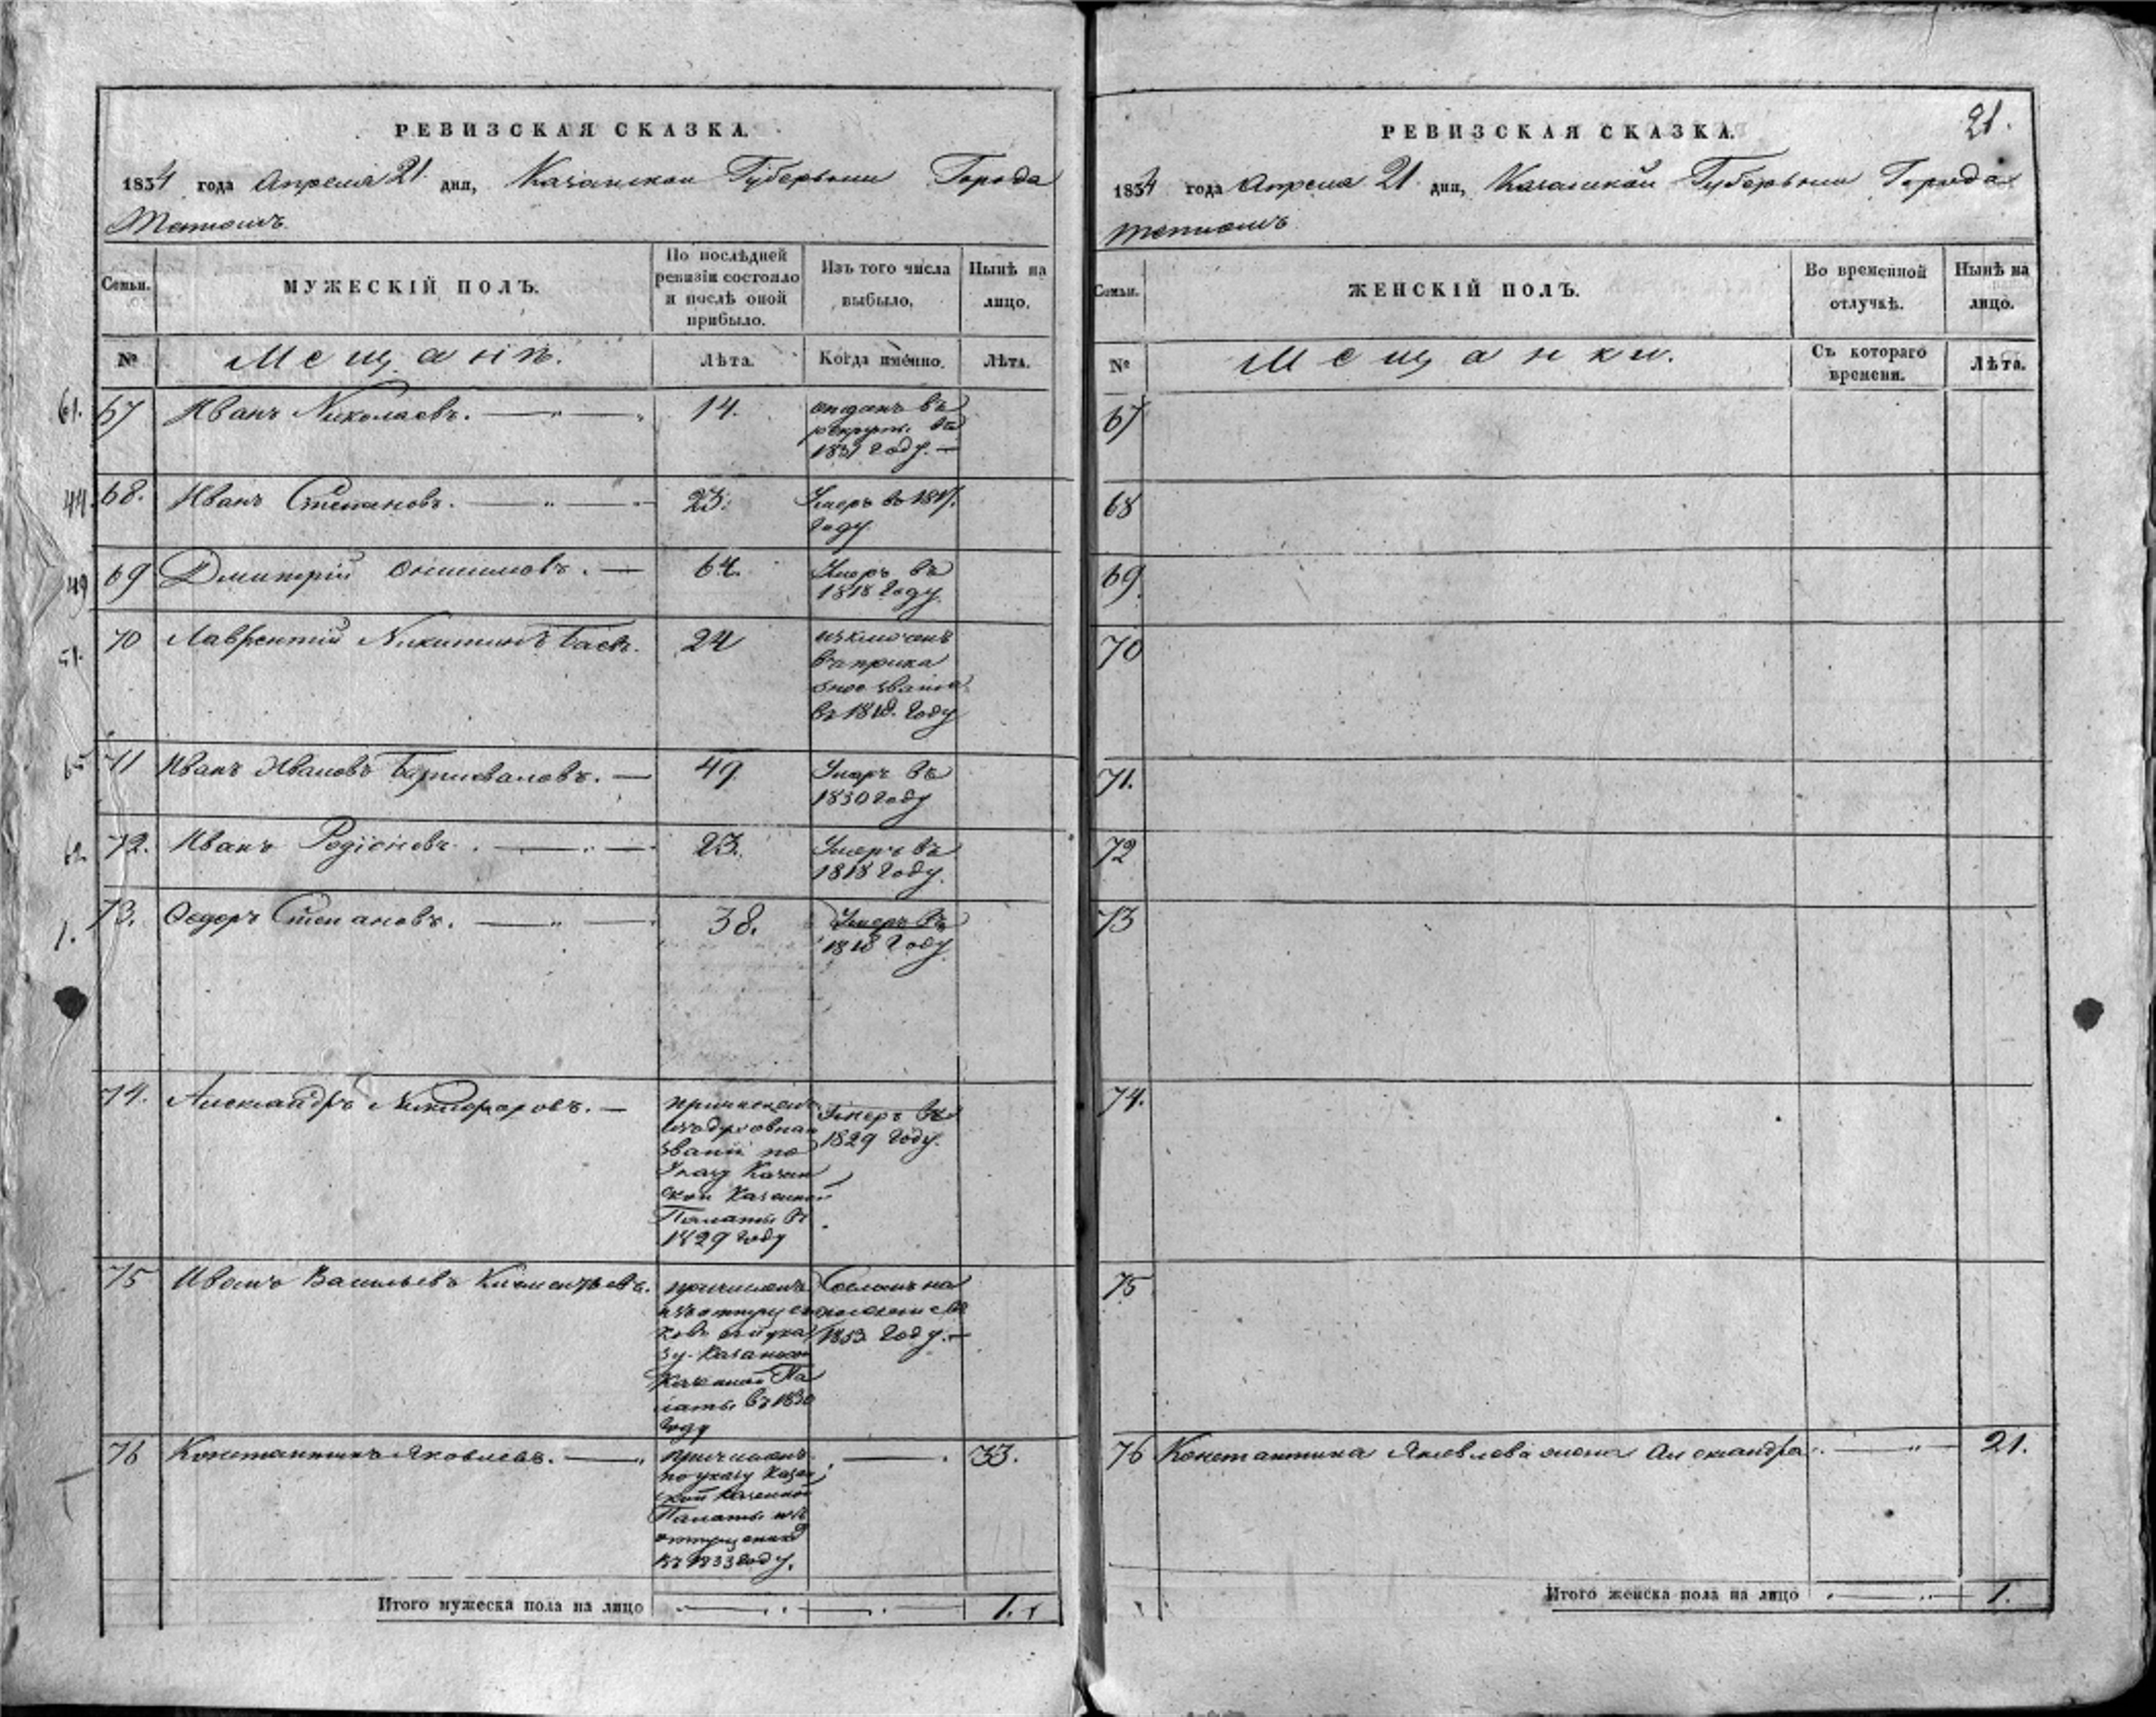 РЕВИЗСКАЯ СКАЗКА.
1834 года Апреля 21 дня, Казанской Губернии Города
Тетюшъ
Семьи. МУЖЕСКІЙ ПОЛЪ. По послѣдней ревизіи состояло и послѣ оной прибыло. Изъ того числа выбыло. Нынѣ на лицо.
№ Мещанѣ. Лѣта. Когда именно. Лѣта.
61. 67 Иванъ Николаевъ. 14. отданъ въ
рекруты въ
1831 году.
44. 68. Иванъ Степановъ. 23. Умеръ въ 1817.
году.
49 69 Дмитрій Онисимовъ. 64. Умеръ въ
1818 году.
51. 70 Лаврентій Никитинъ 24 изключенъ
въ прика
зное званіе
въ 1818. году
71 Иванъ Ивановъ 49 Умеръ въ
1830 году
62. 72. Иванъ Родіоновъ. 23. Умеръ въ
1818 году.
1. 73. Ѳедоръ Степановъ. 38. Умеръ въ
1818 году
74. Александръ Никифоровъ. причисленъ Умеръ въ
изъ духовнаго 1829 году.
званія по
Указу Казан
ской Казенной
Палаты въ
1829 году
75 Иванъ Васильевъ Климентьевъ. причисленъ Сосланъ на
изъ отпущен поселеніе въ
ковъ по ука 1833 году.
зу Казанской
Казенной Па
латы въ 1830
году
76 Константинъ Яковлевъ. причисленъ 33.
по указу Казан
ской Казенной
Палаты изъ
отпущенковъ
въ 1833 году.
Итого мужеска пола на лицо 1.
21.
РЕВИЗСКАЯ СКАЗКА.
1834 года Апреля 21 дня, Казанской Губернии Города
Тетюшъ
Семьи. ЖЕНСКІЙ ПОЛЪ. Во временной отлучкѣ. Нынѣ на лицо.
№ Мещанки. Съ котораго времени. Лѣта.
67
68
69.
70
71.
72
73
74.
75
76 Константина Яковлева жена Александра 21.
Итого женска пола на лицо 1.